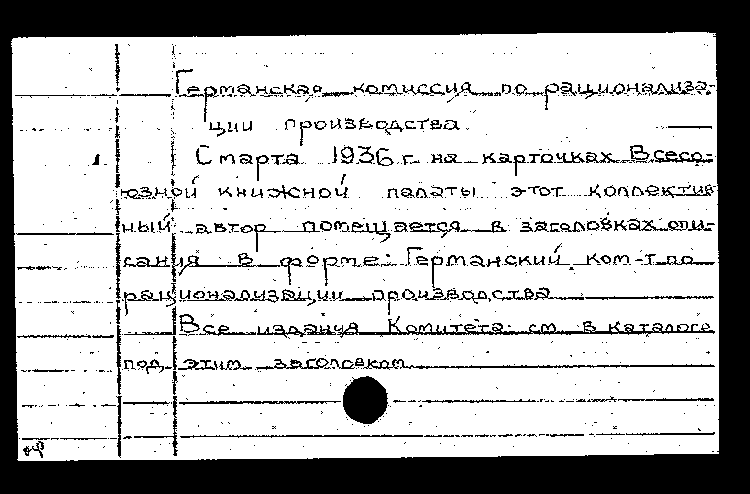 Германская комиссия по рационализа-
ции производства.
1. С марта 1936 г. на карточках Всесо-
юзной книжной палаты этот коллектив
ный автор помещается в заголовках опи-
сания в форме: Германский ком-т по
рационализации производства
Все издания Комитета см. в каталоге
под этим заголовком